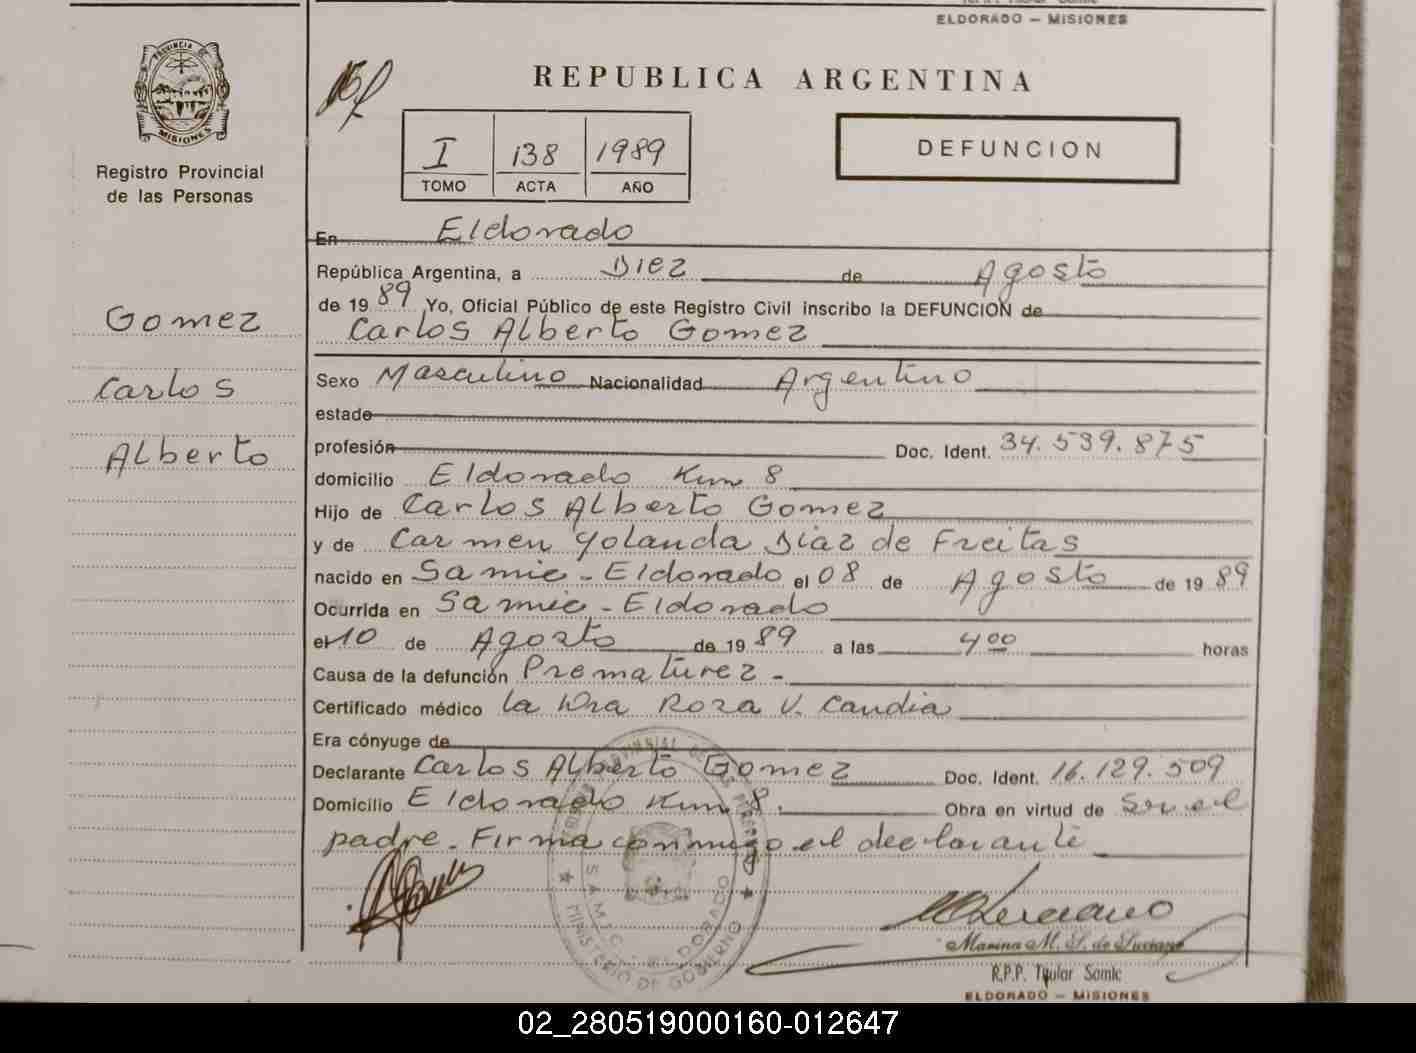 ELDORADO — MISIONES
PROVINCIA DE
MISIONES
Registro Provincial
de las Personas
Gomez
Carlos
Alberto
REPUBLICA ARGENTINA
I 138 1989
TOMO ACTA AÑO
DEFUNCION
En Eldorado
República Argentina, a Diez de Agosto
de 1989 Yo, Oficial Público de este Registro Civil inscribo la DEFUNCION de
Carlos Alberto Gomez
Sexo Masculino Nacionalidad Argentino
estado
profesión Doc. Ident. 34.539.875
domicilio Eldorado Km 8
Hijo de Carlos Alberto Gomez
y de Carmen Yolanda Diaz de Freitas
nacido en Samic - Eldorado el 08 de Agosto de 1989
Ocurrida en Samic - Eldorado
el 10 de Agosto de 1989 a las 4,00 horas
Causa de la defunción Prematurez -
Certificado médico la Dra Roza V. Candia
Era cónyuge de
Declarante Carlos Alberto Gomez Doc. Ident. 16.129.509
Domicilio Eldorado Km 8. Obra en virtud de Ser el
padre - Firma conmigo el declarante
SAMIC ELDORADO
MINISTERIO DE GOBIERNO
Marina M. S. de Luciano
R.P.P. Titular Samic
ELDORADO — MISIONES
02_280519000160-012647